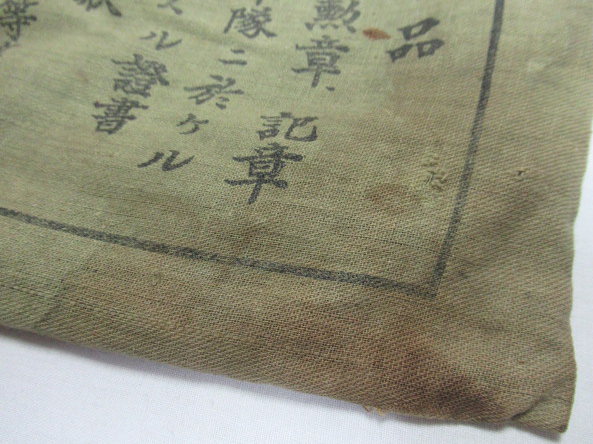 品
勲章、記章
隊ニ於ケル
スル證書
等